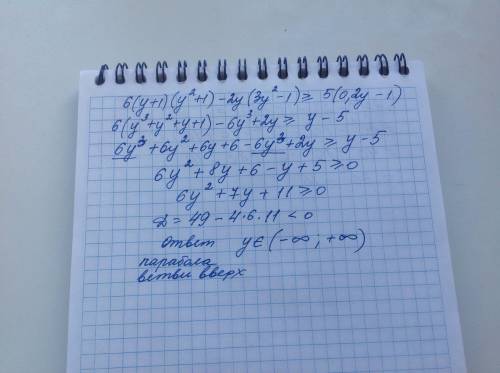 6(y+1)(y²+1)-2y(3y²-1)≥5(0,2y-1)
6(y³+y²+y+1)-6y³+2y≥y-5
6y³+6y²+6y+6-6y³+2y≥y-5
6y²+8y+6-y+5≥0
6y²+7y+11≥0
D=49-4·6·11<0
ответ y∈(-∞;+∞)
парабола
ветви вверх